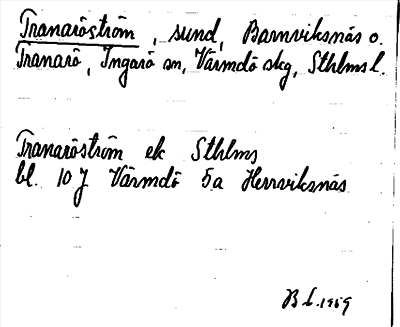 Tranaröström, sund, Barnviksnäs o.
Tranarö, Ingarö sn, Värmdö skg, Sthlms l.
Tranaröström ek Sthlms
bl. 10 J Värmdö 5a Herrviksnäs
B L. 1959